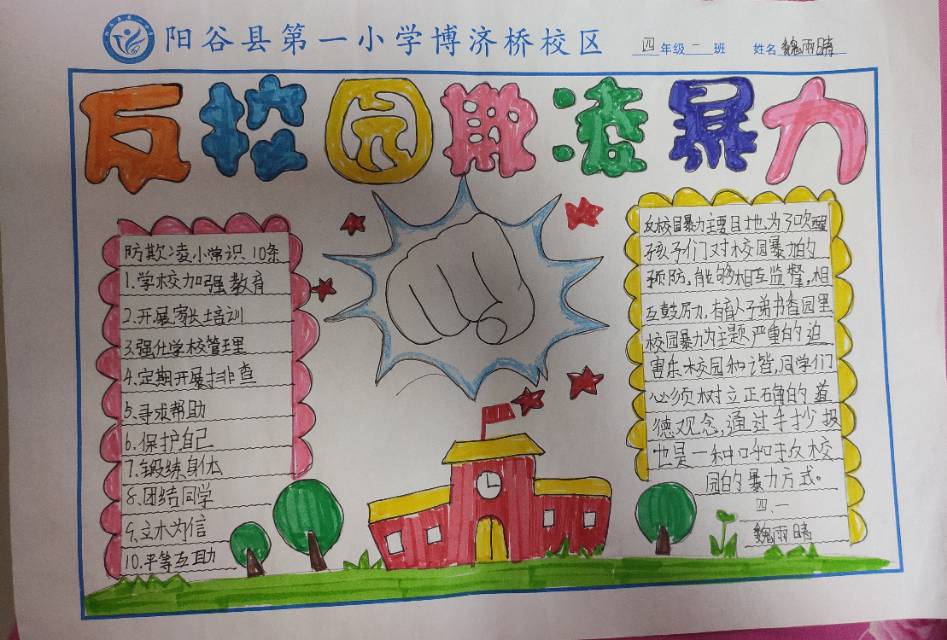 阳谷县第一小学博济桥校区
四年级一班 姓名魏雨晴
反校园欺凌暴力
防欺凌小常识10条
1.学校加强教育
2.开展家长培训
3.强化学校管理
4.定期开展排查
5.寻求帮助
6.保护自己
7.锻练身体
8.团结同学
9.立木为信
10.平等互助
反校园暴力主要目地、为了吹醒
孩子们对校园暴力的
预防,能够相互监督,相
互鼓厉力,有
校园暴力为主题,严重的迫
害乐校园和谐,同学们
必须树立正确的道
德观念,通过手抄报
也是一种呼吁校
园的暴力方式。
四、一
魏雨晴